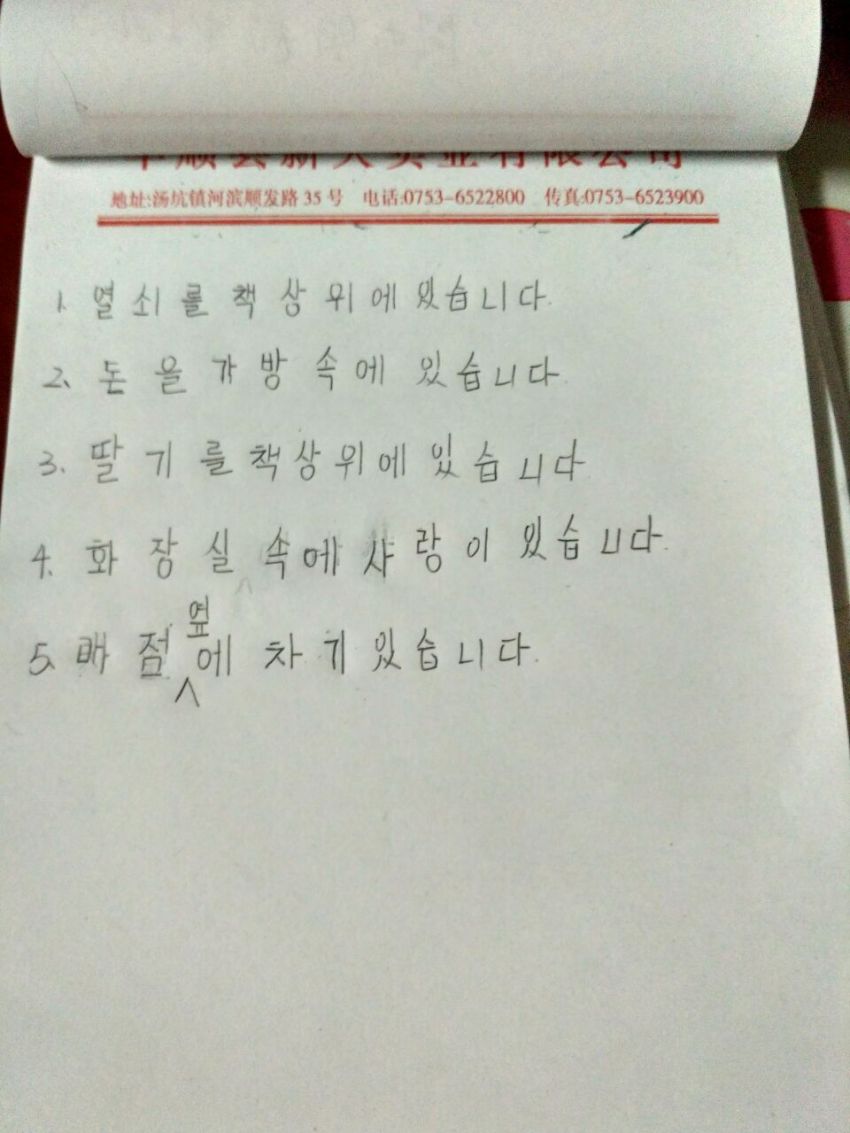 地址:汤坑镇河滨顺发路 35 号 电话:0753-6522800 传真:0753-6523900
1. 열쇠를 책상위에 있습니다.
2. 돈을 가방 속에 있습니다.
3. 딸기를 책상위에 있습니다
4. 화장실 속에 사랑이 있습니다.
5. 배점 옆에 차기 있습니다.